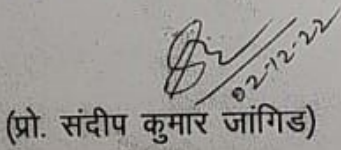 02-12-22
(प्रो. संदीप कुमार जांगिड)